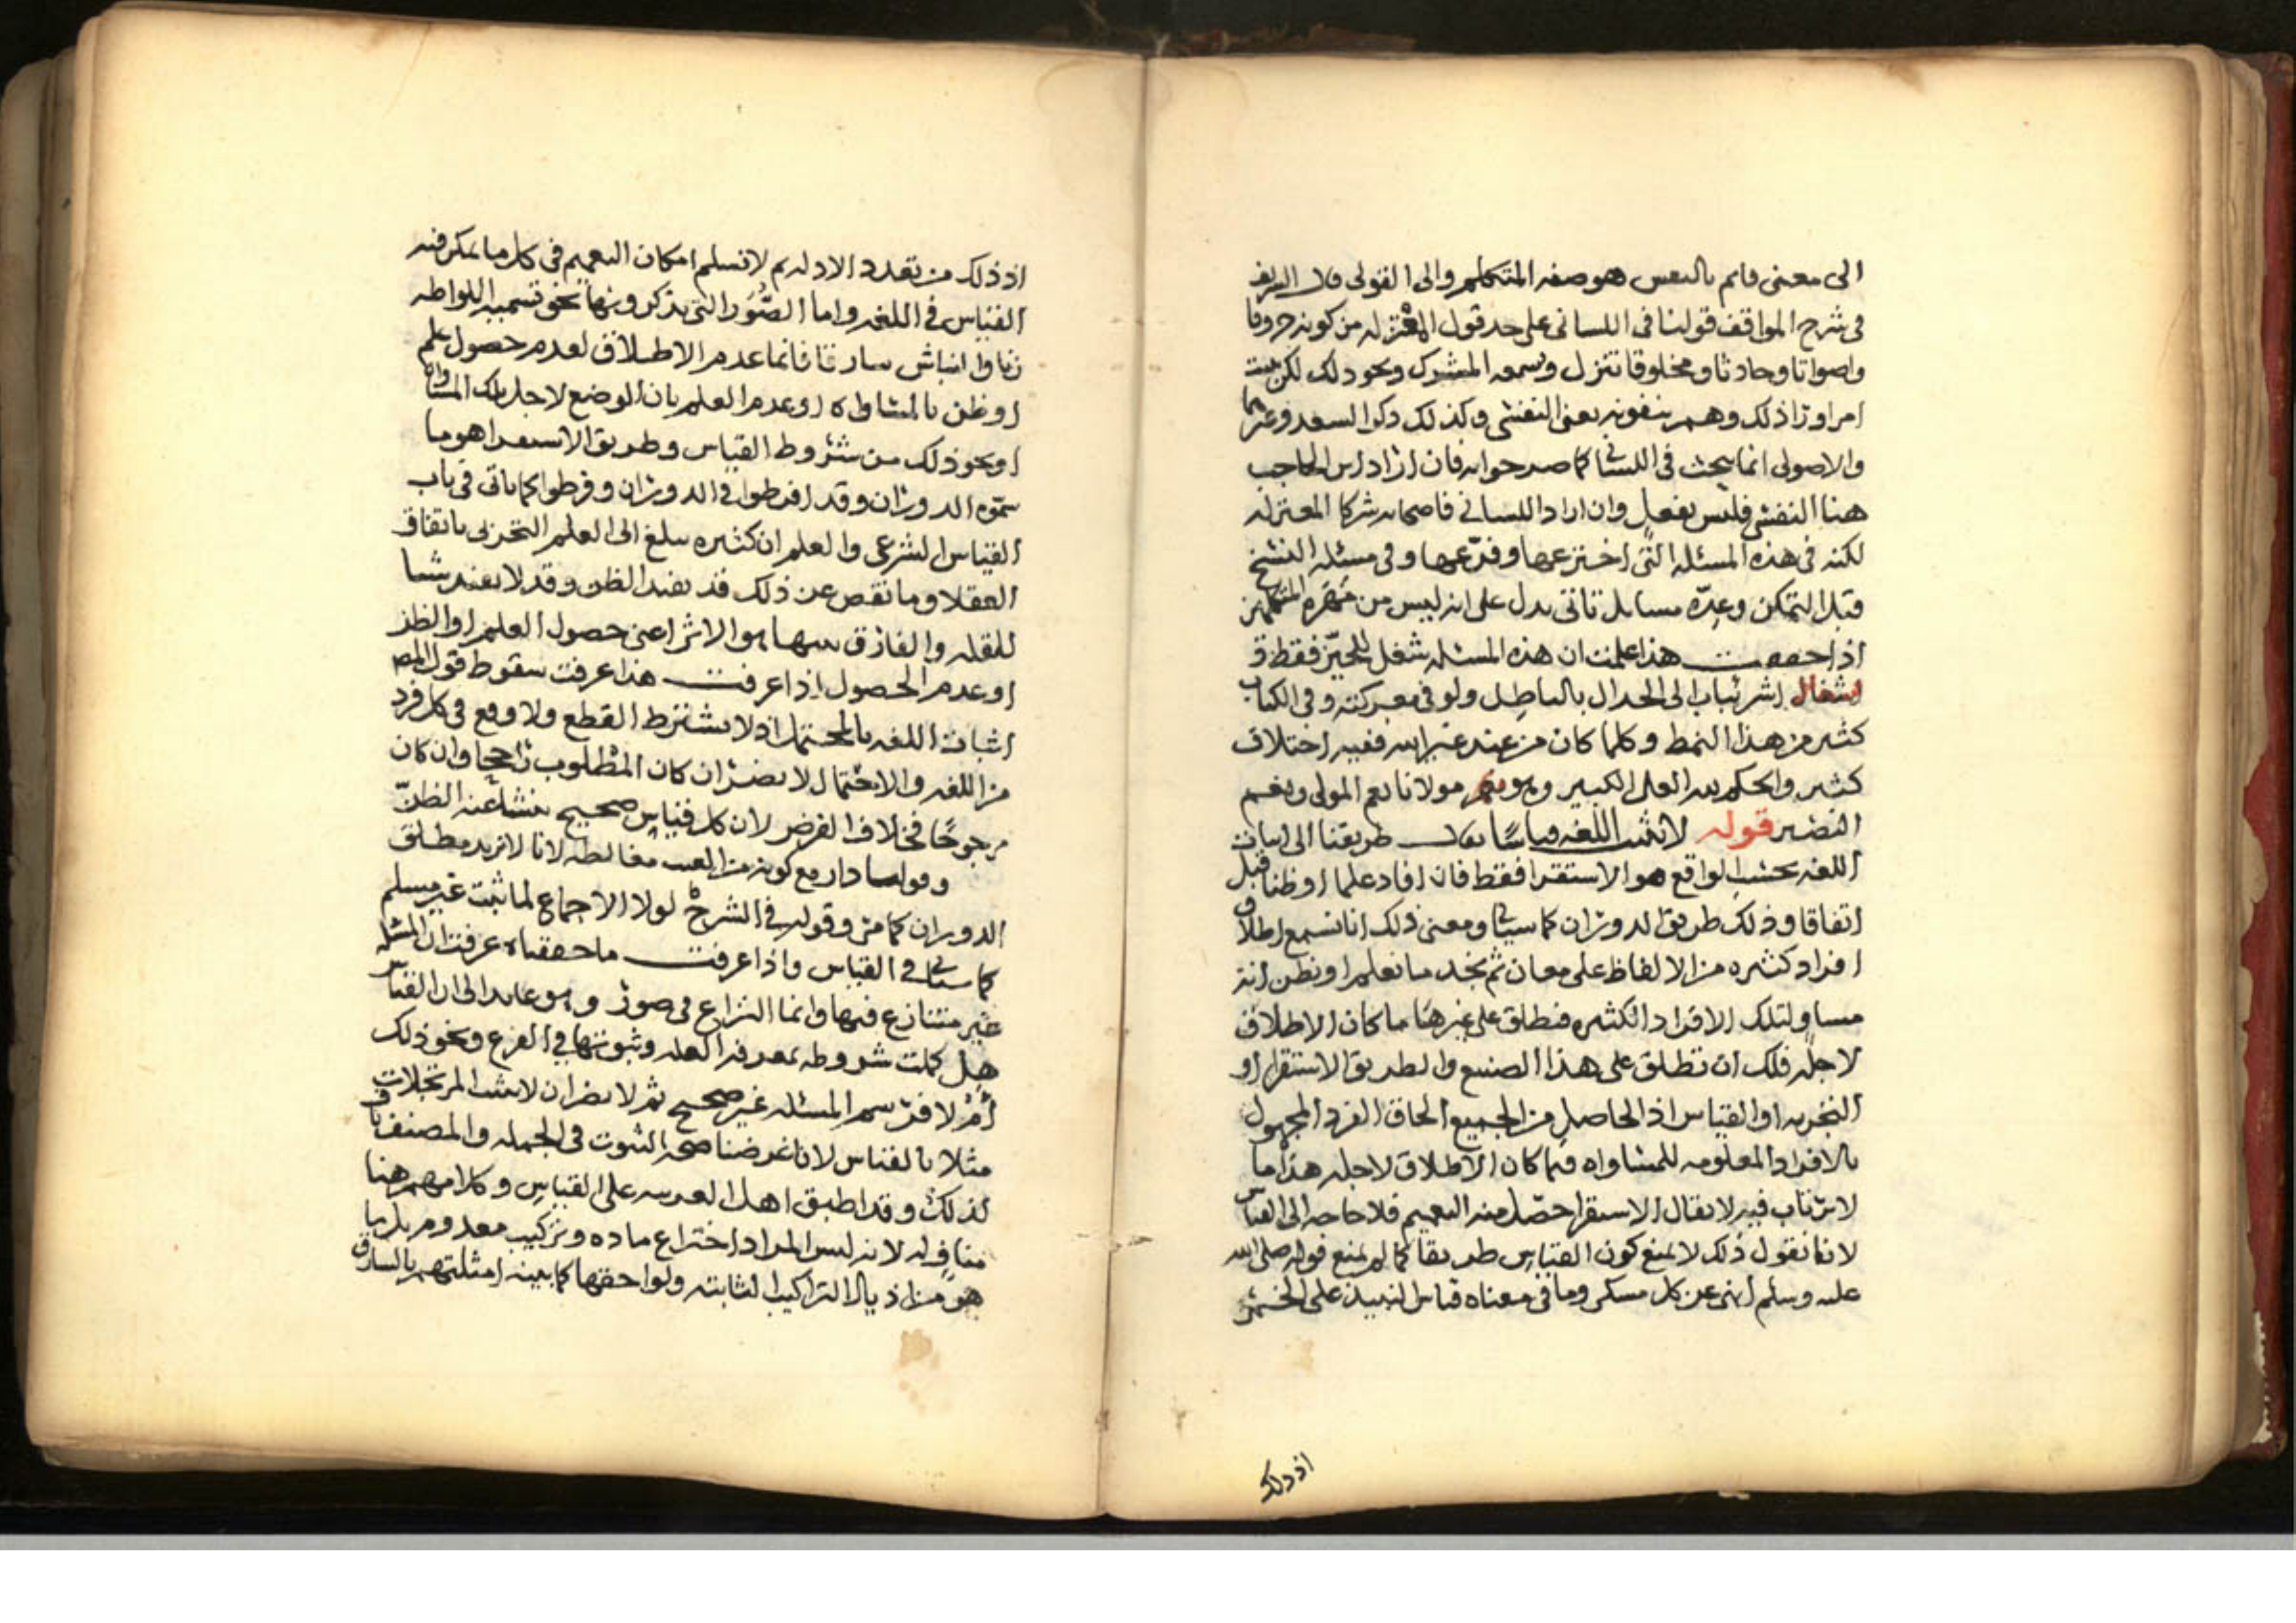 الى معنى قايم بالنفس هو صفه المتكلم والى القولى قال الشريف
فى شرح المواقف قولنا فى اللسانى على حد قول المعتزله من كونه حروفا
واصواتا وحادثا ومخلوقا تنزل وسمعه المشرك ونحو ذلك لكن نثبت
امرا ورا ذلك وهم ينفونه يعنى النفسى وكذلك ذكر السعد وغيرهما
والاصولى انما يبحث فى اللسانى كما صرحوا به فان اراد ابن الحاجب
هنا النفسى فليس بفعل وان اراد اللسانى فاصحابه شركا المعتزله
لكنه فى هذه المسئله التى اخترعها وفرّعها وفى مسئله النسخ
قبل التمكن وعدّه مسايل تاتى يدل على انه ليس من مهره المتكلمين
اذا حققت هذا علمت ان هذه المسئله شغل للحيّز فقط و
اشعال اشرئباب الى الجدال بالباطل ولو فى معركته وفى الكتاب
كثير من هذا النمط وكلما كان من عند غير الله ففيه اختلاف
كثير والحكم لله العلى الكبير وهو مولانا نعم المولى ونعم
النصير قوله لا تثبت اللغه قياسًا يقال طريقنا الى اثبات
اللغه بحسب الواقع هو الاستقرا فقط فان افاد علما او ظنا قبل
اتفاقا وذلك طريق الدوران كما سياتى ومعنى ذلك انا نسمع اطلاق
افراد كثيره من الالفاظ على معان ثم نجد ما نعلم او نظن انه
مساو لتلك الافراد الكثيره فنطلق على غيرها ما كان الاطلاق
لاجله فلك ان تطلق على هذا الصنيع والطريق الاستقرا او
التجربه او القياس اذ الحاصل من الجميع الحاق الفرد المجهول
بالافراد المعلومه للمساواه فيما كان الاطلاق لاجله هذا ما
لا يرتاب فيه لا يقال الاستقرا حصّل منه التعميم فلا حاجه الى القياس
لانا نقول ذلك لا يمنع كون القياس طريقا كما لم يمنع قوله صلى الله
عليه وسلم انهى عن كل مسكر وما فى معناه قياس النبيذ على الخمر
اذ ذلك
اذ ذلك من تعدد الادله ثم لا نسلم امكان التعميم فى كل ما يمكن فيه
القياس فى اللغه واما الصُّوَر التى يذكرونها نحو تسميه اللواطه
زنا والنباش سارقا فانما عدم الاطلاق لعدم حصول علم
او ظن بالمساواه او عدم العلم بان الوضع لاجل تلك المساواه
او نحو ذلك من شروط القياس وطريق الاستقرا هو ما
سمّوه الدوران وقد افرطوا فى الدوران وفرطوا كما ياتى فى باب
القياس الشرعى والعلم ان كثيره يبلغ الى العلم التجربى باتفاق
العقلا وما نقص عن ذلك قد يفيد الظن وقد لا يفيد شيا
للقله والفارق بينهما هو الاثر اعنى حصول العلم او الظن
او عدم الحصول اذا عرفت هذا عرفت سقوط قول المص
اثبات اللغه بالمحتمل اذ لا يشترط القطع ولا وقع فى كل فرد
من اللغه والاحتمال لا يضر ان كان المطلوب راجحا وان كان
مرجوحًا فخلاف الفرض لان كل قياس صحيح ينشا عنه الظنّ
وقولهما دار مع كونه من العنب مغالطه لانا لا نريد مطلق
الدوران كما مرّ وقوله فى الشرح لولا الاجماع لما ثبت غير مسلم
كما سياتى فى القياس واذا عرفت ما حققناه عرفت ان المسئله
غير متنازع فيها وانما النزاع فى صور وهو عايد الى ان القياس
هل كملت شروطه بمعرفه العله وثبوتها فى الفرع ونحو ذلك
أم لا فرسم المسئله غير صحيح ثم لا يضر ان لا تثبت المرتجلات
مثلا بالقياس لان غرضنا صحه الثبوت فى الجمله والمصنف
لذلك وقد اطبق اهل العربيه على القياس وكلامهم هنا
مناف له لانه ليس المراد اختراع ماده وتركيب معدوم بل ما
هو من اذيال التراكيب الثابته ولواحقها كما بينه امثلتهم بالسارق